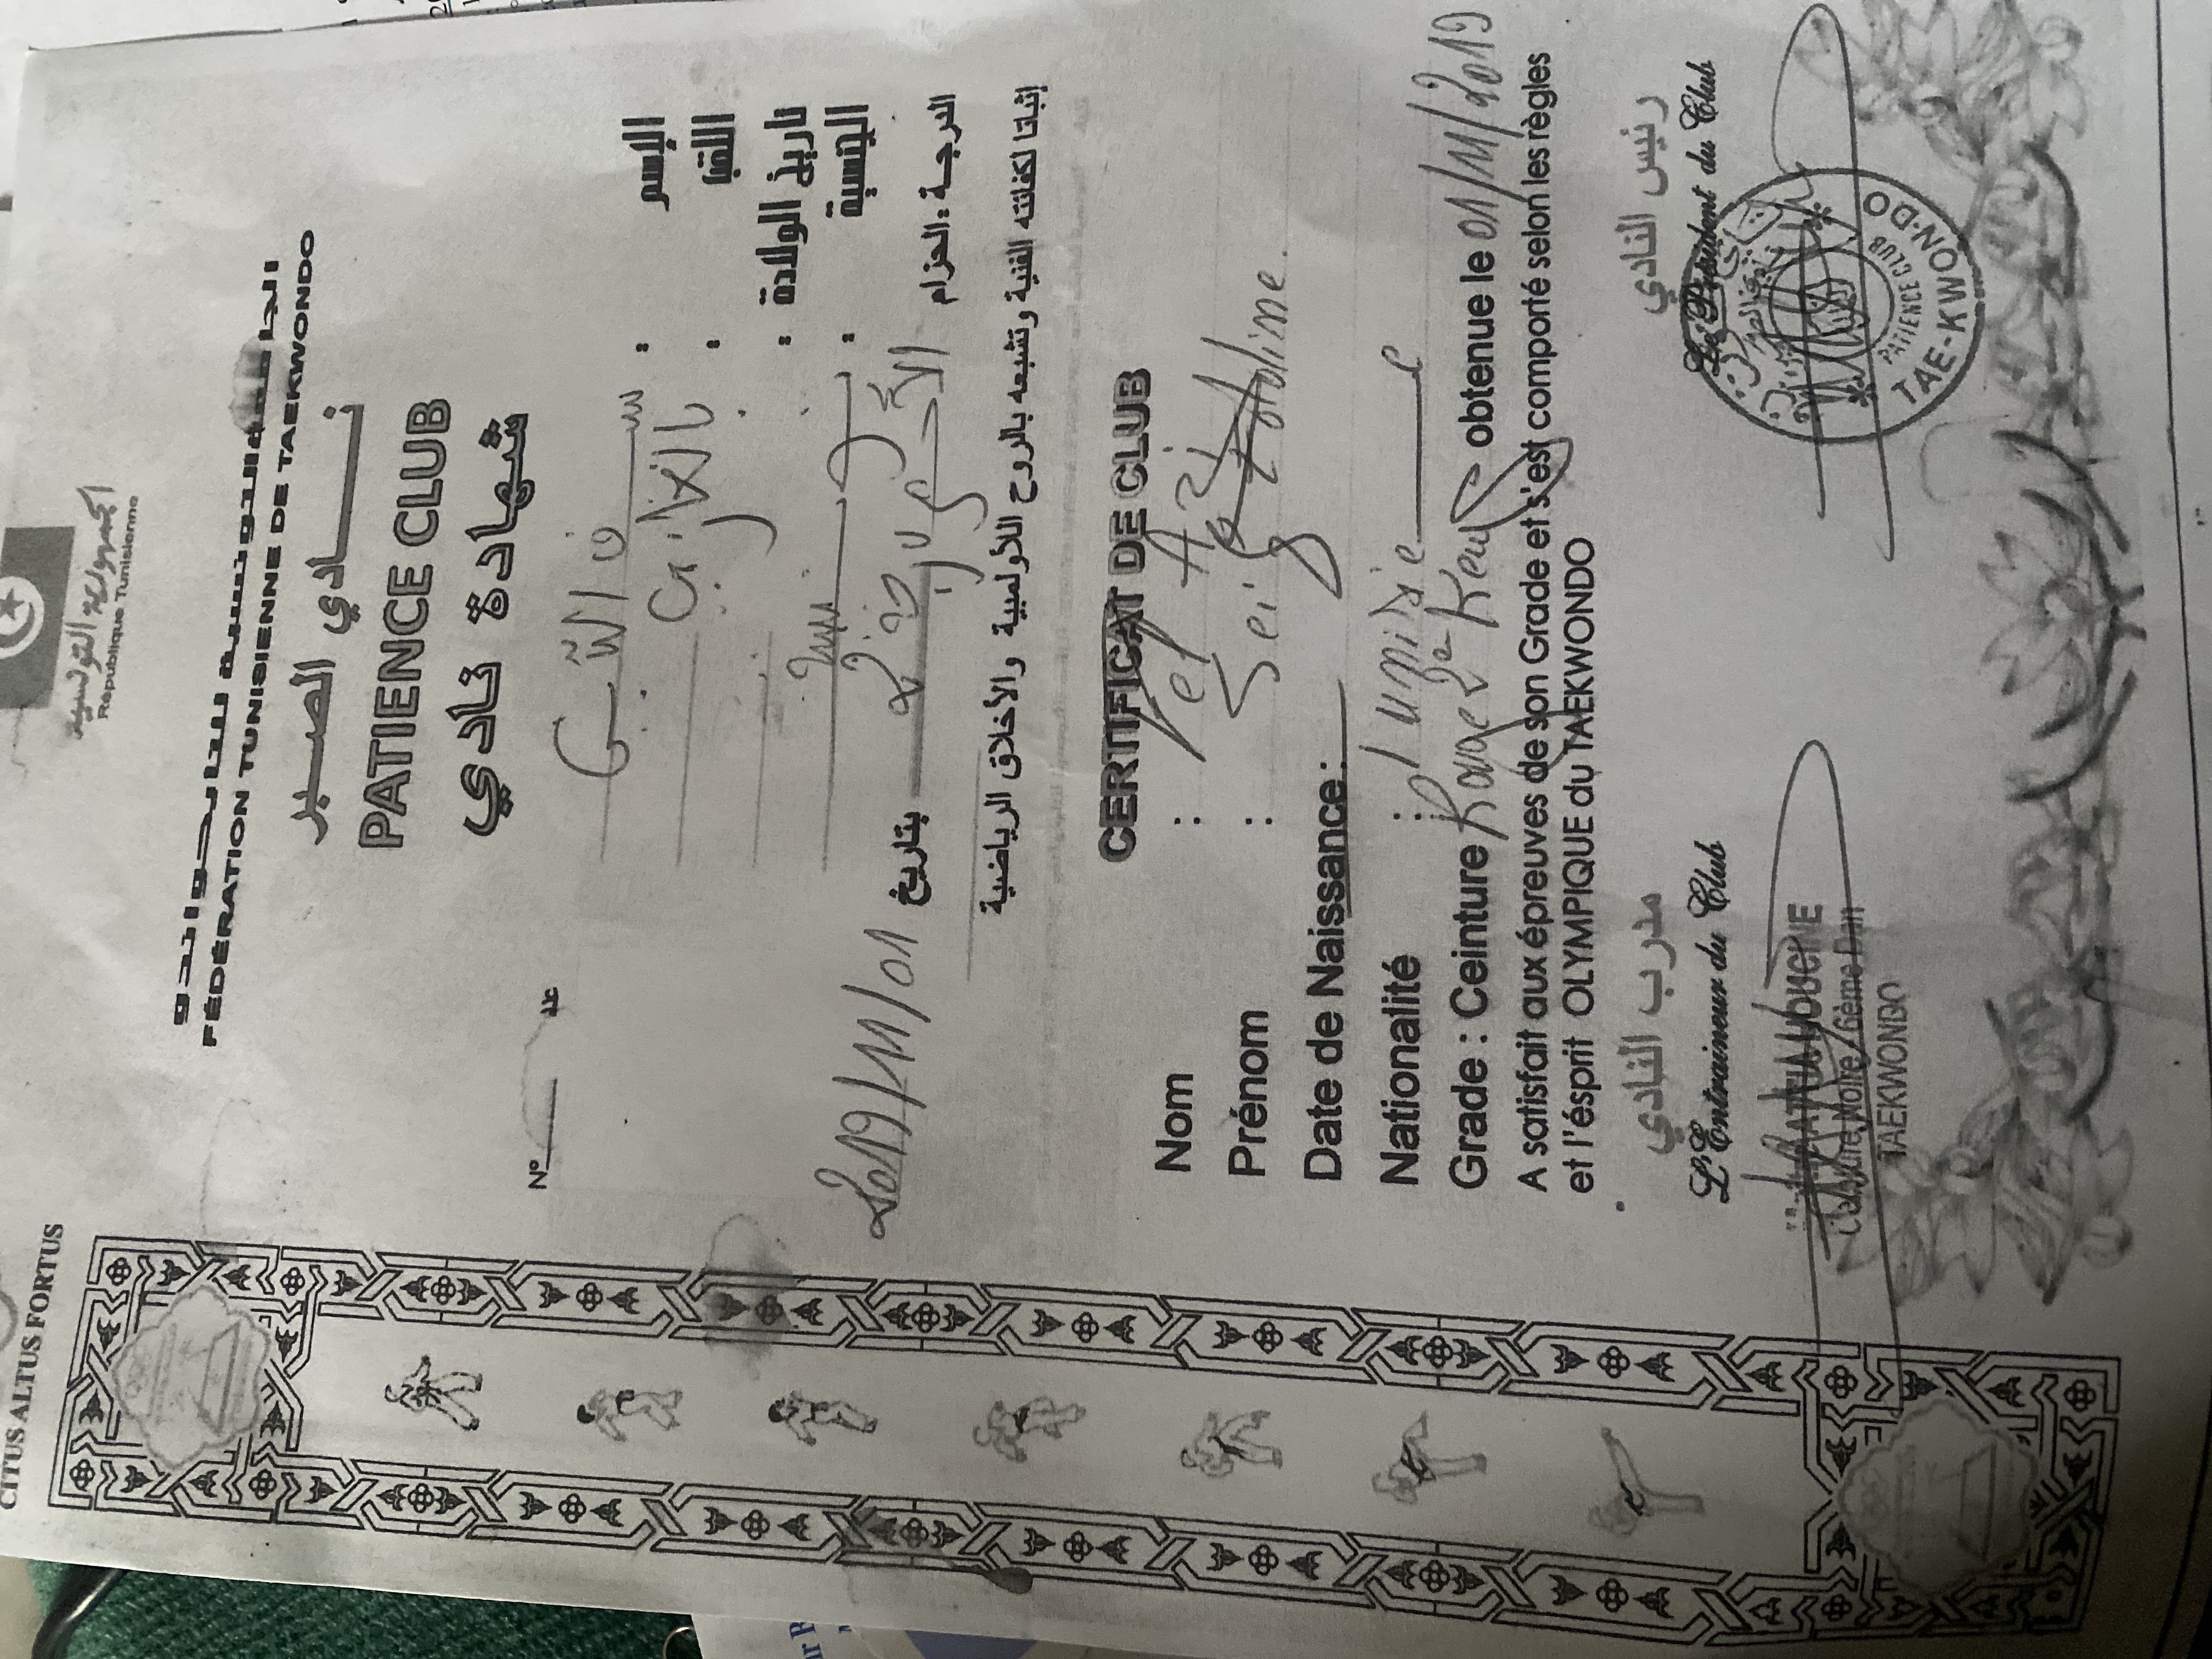 CITUS ALTUS FORTUS
الجمهورية التونسية
République Tunisienne
الجامعة التونسية للتايكواندو
FÉDÉRATION TUNISIENNE DE TAEKWONDO
نادي الصبر
PATIENCE CLUB
شهادة نادي
N° عدد
الإسم :
اللقب :
تاريخ الولادة :
الجنسية : تونسية
الدرجة : الحزام الأحمر درجة 2 بتاريخ 2019/11/01
إثباتا لكفائته الفنية وتشبعه بالروح الأولمبية والأخلاق الرياضية
CERTIFICAT DE CLUB
Nom :
Prénom : Seif
Date de Naissance :
Nationalité : Tunisie
Grade : Ceinture Rouge 2e Keup obtenue le 01/11/2019
A satisfait aux épreuves de son Grade et s'est comporté selon les règles
et l'ésprit OLYMPIQUE du TAEKWONDO
مدرب النادي رئيس النادي
L'Entraineur du Club Le Président du Club
Ceinture Noire 6ème Dan
TAEKWONDO
PATIENCE CLUB
TAE-KWON-DO